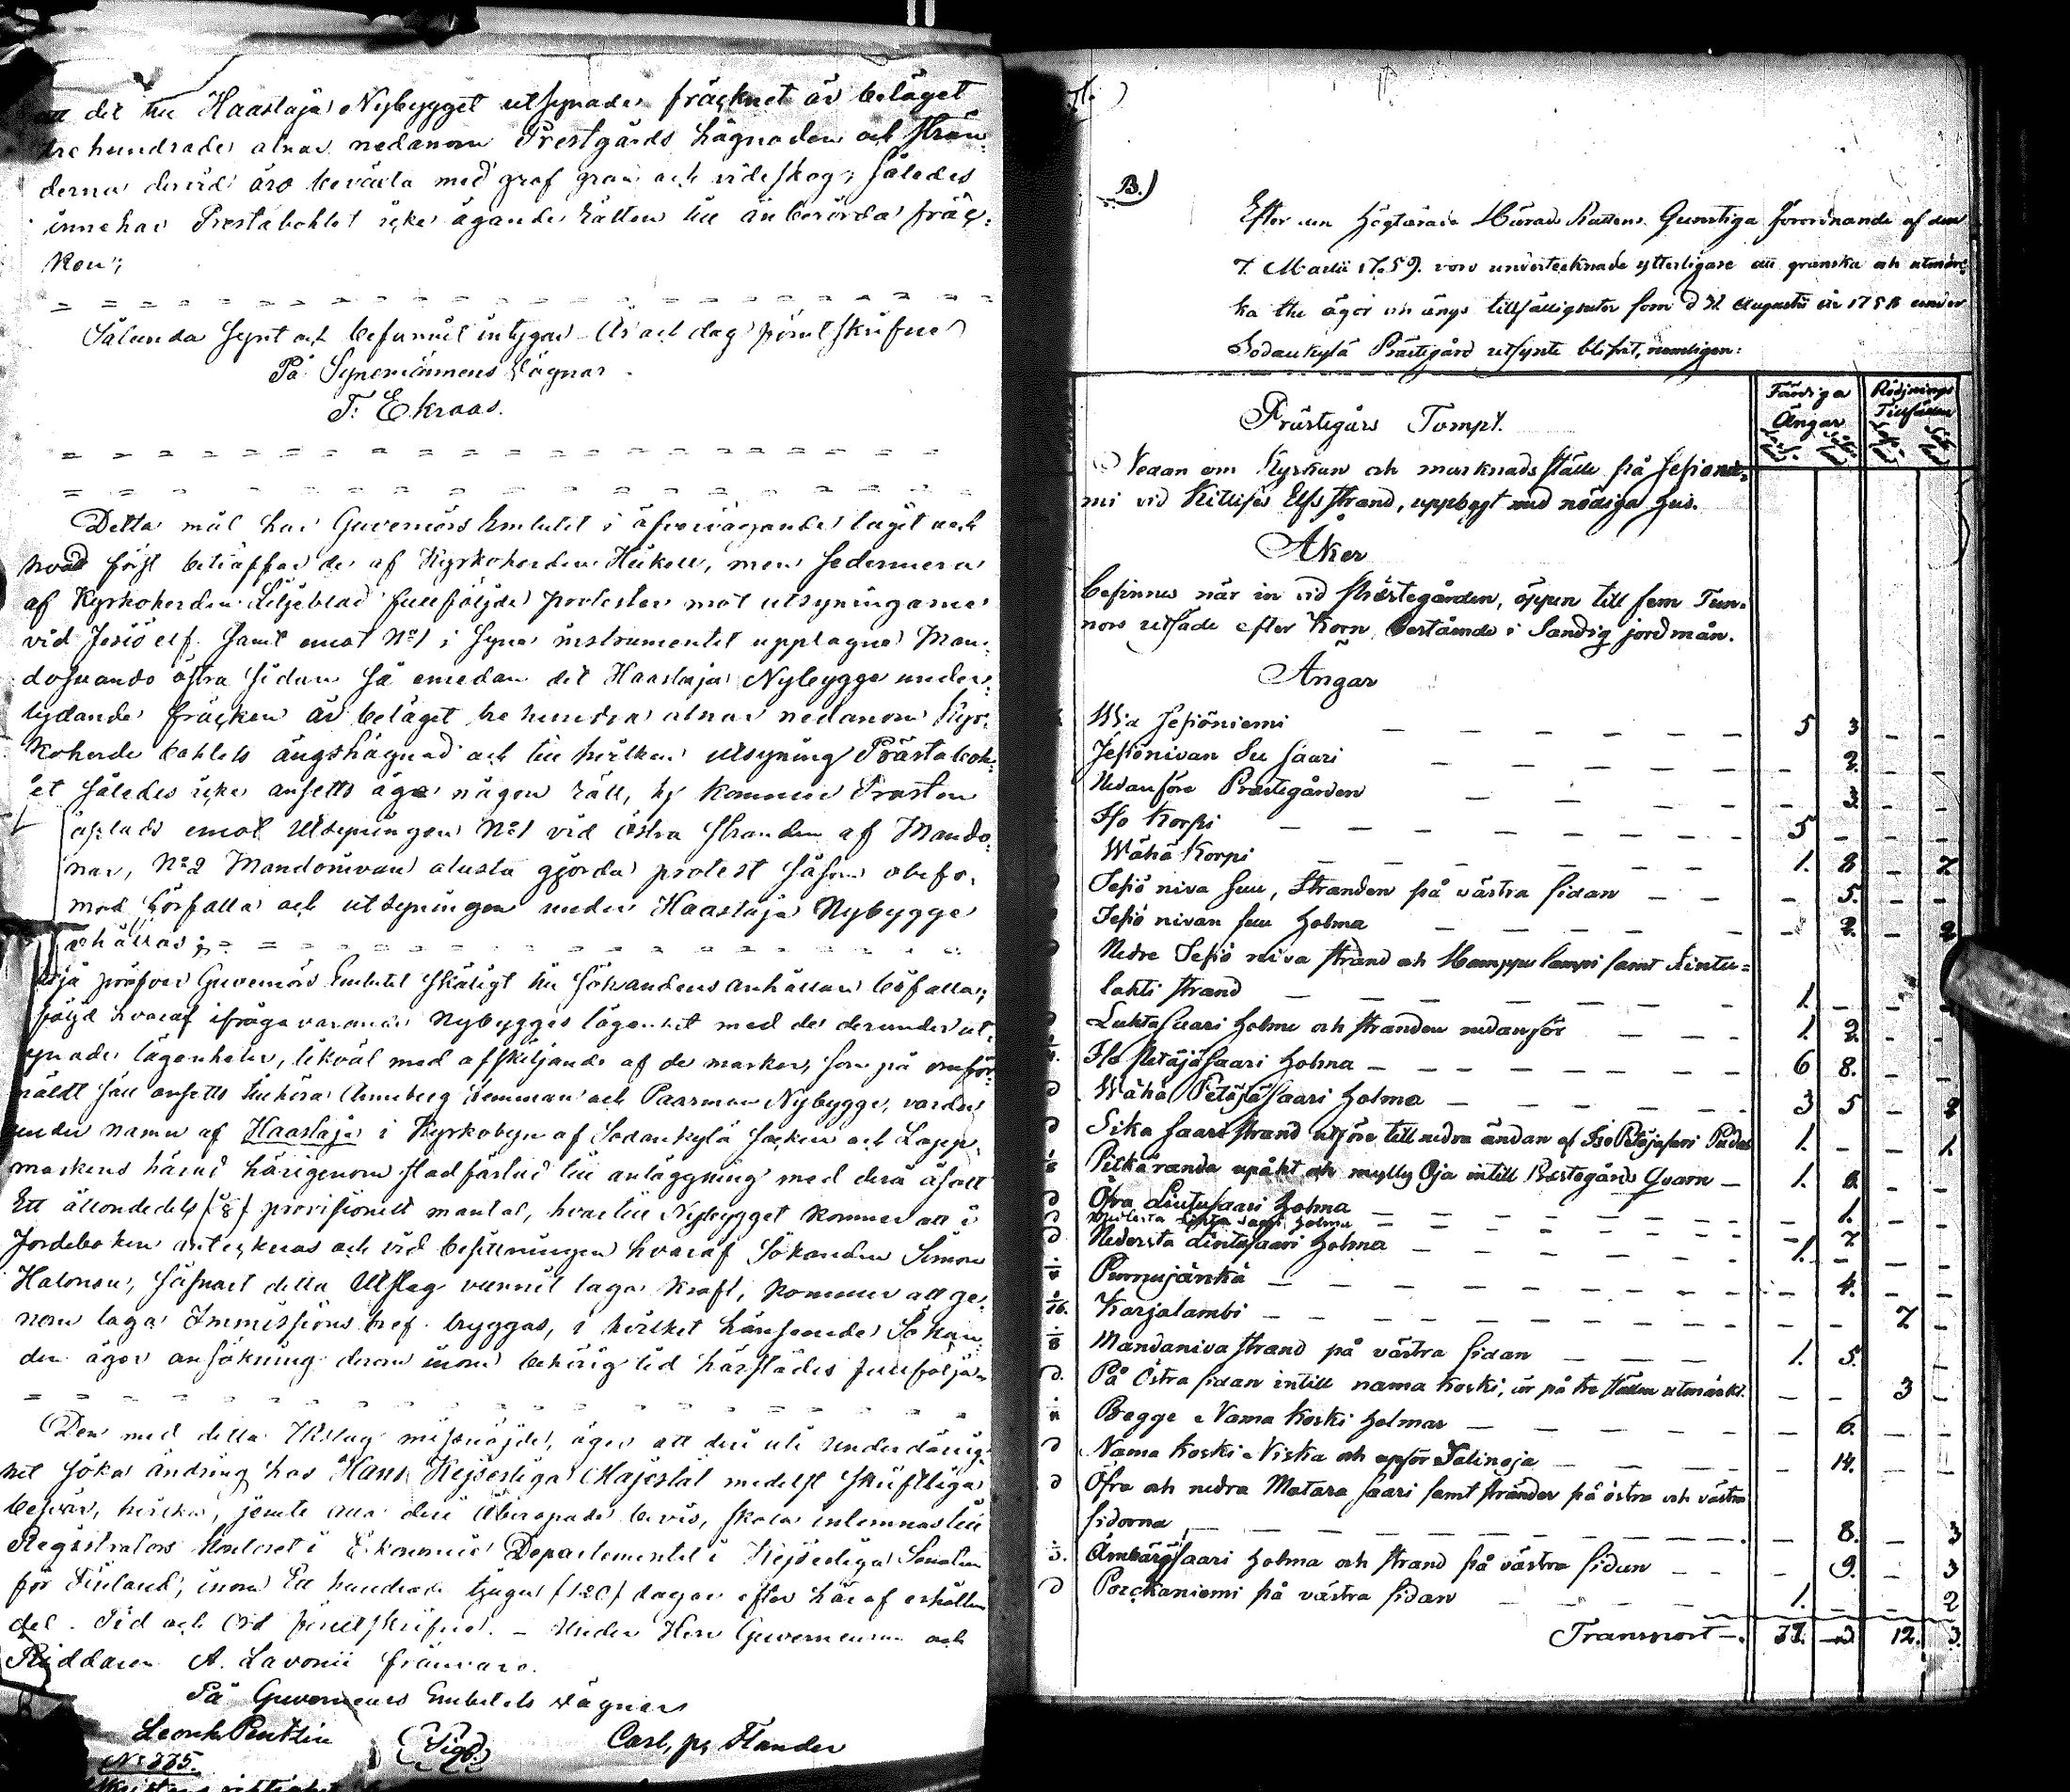 att det till Haastaja Nybygget utsynade fräknet är beläget
trehundrade alnar nedanom Prestgårds hägnaden och strän-
derna dervid äro bevärta med graf gran och videskog; således
innehar Prestabohlet icke ägande rätten till änberörda fräk-
ken;
Sålunda synt och befunnit intygar. År och dag förut skrifne
På Synemännens vägnar.
T: Ekraas.
Detta mål har Guvernörs Embetet i öfvervägande tagit och
hvad först beträffar de af Kyrkoherden Heikell, men sedermera
af Kyrkoherden Liljeblad fullföljde protester mot utsyningarne
vid Jesiö elf samt emot No 1 i Syne instrumentet upptagne Man-
dosuando östra sidan så emedan det Haastaja Nybygge under-
lydande fräken är beläget tre hundra alnar nedanom Kyr-
koherde bohlets ängshägnad och till hvilken utsyning Prästaboh-
let således icke ansetts äga någon rätt, ty kommer Prosten
åflade emot Utsyningen No 1 vid östra stranden af Mando-
nar, No 2 Mandonivan alusta gjorda protest såsom obefo-
gad förfalla och utsyningen under Haastaja Nybygge
ehållas;
pröfvar Guvernörs Embetet skäligt till sökandens anhållan bifalla;
följd hvaraf ifrågavarande Nybygges lägenhet med de derunder ut-
synade lägenheter, likväl med afskiljande af de marker, som på omför-
mäldt sätt ansetts tillhöra Anneberg Kemman och Paarman Nybygge, varder
under namn af Haastaja i Kyrkobyn af Sodankylä Socken och Lapp-
markens härad härigenom stadfästad till anläggning med derå åsatt
Ett åttondedels (1/8) provisionelt mantal, hvartill Nybygget kommer att i
Jordeboken anteknas och vid besittningen hvaraf Sökanden Simon
Halonen, såsnart detta Utslag vunnit laga kraft, kommer att ge-
nom laga Immissions bref tryggas, i hvilket hänseende Sökan-
den äger ansökning derom inom behörig tid härstädes fullfölja.
Den med detta Utslag missnöjde, äger att deri uti underdånig-
het söka ändring hos Hans Kejserliga Majestät medelst skriftliga
besvär, hvilka, jemte alla deri åberopade bevis, skola inlemnas till
Registrators Kontoret i Ekonomie Departementet i Kejserliga Senaten
för Finland, inom Ett hundrade tjugu (120) dagar efter häraf erhållen
del. Tid och Ord förutskrifne. - Under Herr Guverneurens och
Riddaren A. Lavonii frånvaro.
På Guverneurs Embetets vägnar
Leonh. Pentzin
Carl, Flander
No 225.
(Sigill)
B.)
Efter den Högtärade Härads Rättens Gunstiga förordnande af den
7. Martii 1759. vore undertecknade ytterligare att granska och utmär-
ka the ägor och ängs tillfälligheter som d 31 Augustii år 1758 under
Sodankylä Prästegård utsynte blifvit, nemligen:
Färdiga Ängar
Rödjnings Tillfällen
Prästegårs Tompt.
Nedan om Kyrkan och marknads ställe på Jesiönie-
mi vid Kittises Elfs strand, uppbygt med nödiga hus.
Åker
befinnes när in vid Prästegården, öppen till fem Tun-
nors utsäde efter Korn, bestående i Sandig jordmån.
Ängar
Wid Jesiöniemi 5 3 - -
Jesiönivan Su saari - 2. - -
Nedanföre Prästegården - 3. - -
Iso Korpi 5 - - -
Wähä Korpi 1. 8 - 7
Jesiö niva suu, Stranden på västra sidan - 5. - -
Jesiö nivan suu holma - 2. - 2
Nedre Jesiö niva strand och Hamppu lampi samt Lintu-
lahti strand 1. - -
Luhtasaari holme och stranden nedanför 1. 2. - -
Iso Petäjäsaari holma 6 8. - -
Wähä Petäjäsaari holma 3 5 - 2
Sika saari strand utföre till nedra ändan af Iso Petäjäsaari Pudas 1. - - 1.
Pitkäranda upåkt och mylly Oja intill Prestegårds Qvarn 1. 8. - -
Öfra Lintusaari holma - 1. - -
Mellersta Lintu saari holma - 7 - -
Nedersta Lintusaari holma 1. - - -
Purnujänkä - 4. - -
Karjalambi - - 7 -
Mandaniva strand på västra sidan 1. 5. - -
På Östra sidan intill nama koski, är på tre ställen utmärkt. - - 3 -
Begge Nama Koski holmar - 6. - -
Nama koski Niska och upför Talinoja - 14. - -
Öfra och nedra Matara saari samt stränder på östra och västra
sidorna - 8. - 3
Ämbärgsaari holma och strand på västra sidan - 9. - 3
Porckaniemi på västra sidan 1. - - 2
Transport 37. 12. 3.